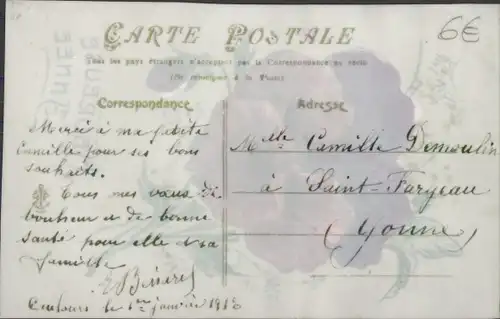 6€
CARTE POSTALE
Tous les pays étrangers n'acceptent pas la Correspondance au verso
(Se renseigner à la Poste)
Correspondance
Merci à ma petite
Camille pour ses bons
souhaits.
Tous mes vœux de
bonheur et de bonne
santé pour elle et sa
famille
le 1er janvier 191
Adresse
Melle Camille Demoulin
à Saint-Fargeau
(Yonne)